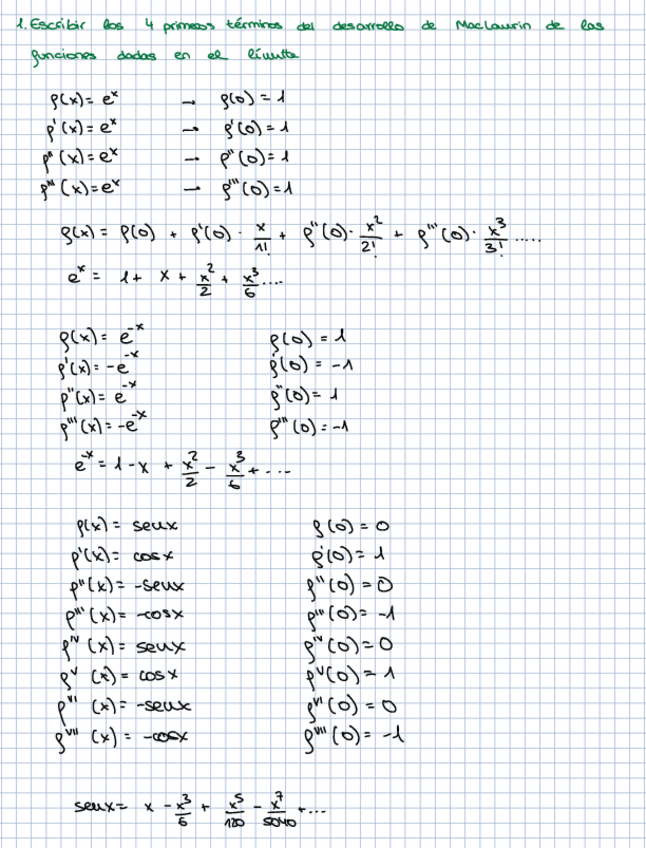 1. Escribir los 4 primeros términos del desarrollo de MacLaurin de las
funciones dadas en el límite
f(x) = e^x → f(0) = 1
f'(x) = e^x → f'(0) = 1
f''(x) = e^x → f''(0) = 1
f'''(x) = e^x → f'''(0) = 1
f(x) = f(0) + f'(0) · x/1! + f''(0) · x^2/2! + f'''(0) · x^3/3! .....
e^x = 1 + x + x^2/2 + x^3/6 ....
f(x) = e^-x f(0) = 1
f'(x) = -e^-x f'(0) = -1
f''(x) = e^-x f''(0) = 1
f'''(x) = -e^-x f'''(0) = -1
e^-x = 1 - x + x^2/2 - x^3/6 + ...
f(x) = senx f(0) = 0
f'(x) = cosx f'(0) = 1
f''(x) = -senx f''(0) = 0
f'''(x) = -cosx f'''(0) = -1
f^IV (x) = senx f^IV(0) = 0
f^V (x) = cosx f^V(0) = 1
f^VI (x) = -senx f^VI(0) = 0
f^VII (x) = -cosx f^VII(0) = -1
senx = x - x^3/6 + x^5/120 - x^7/5040 + ...